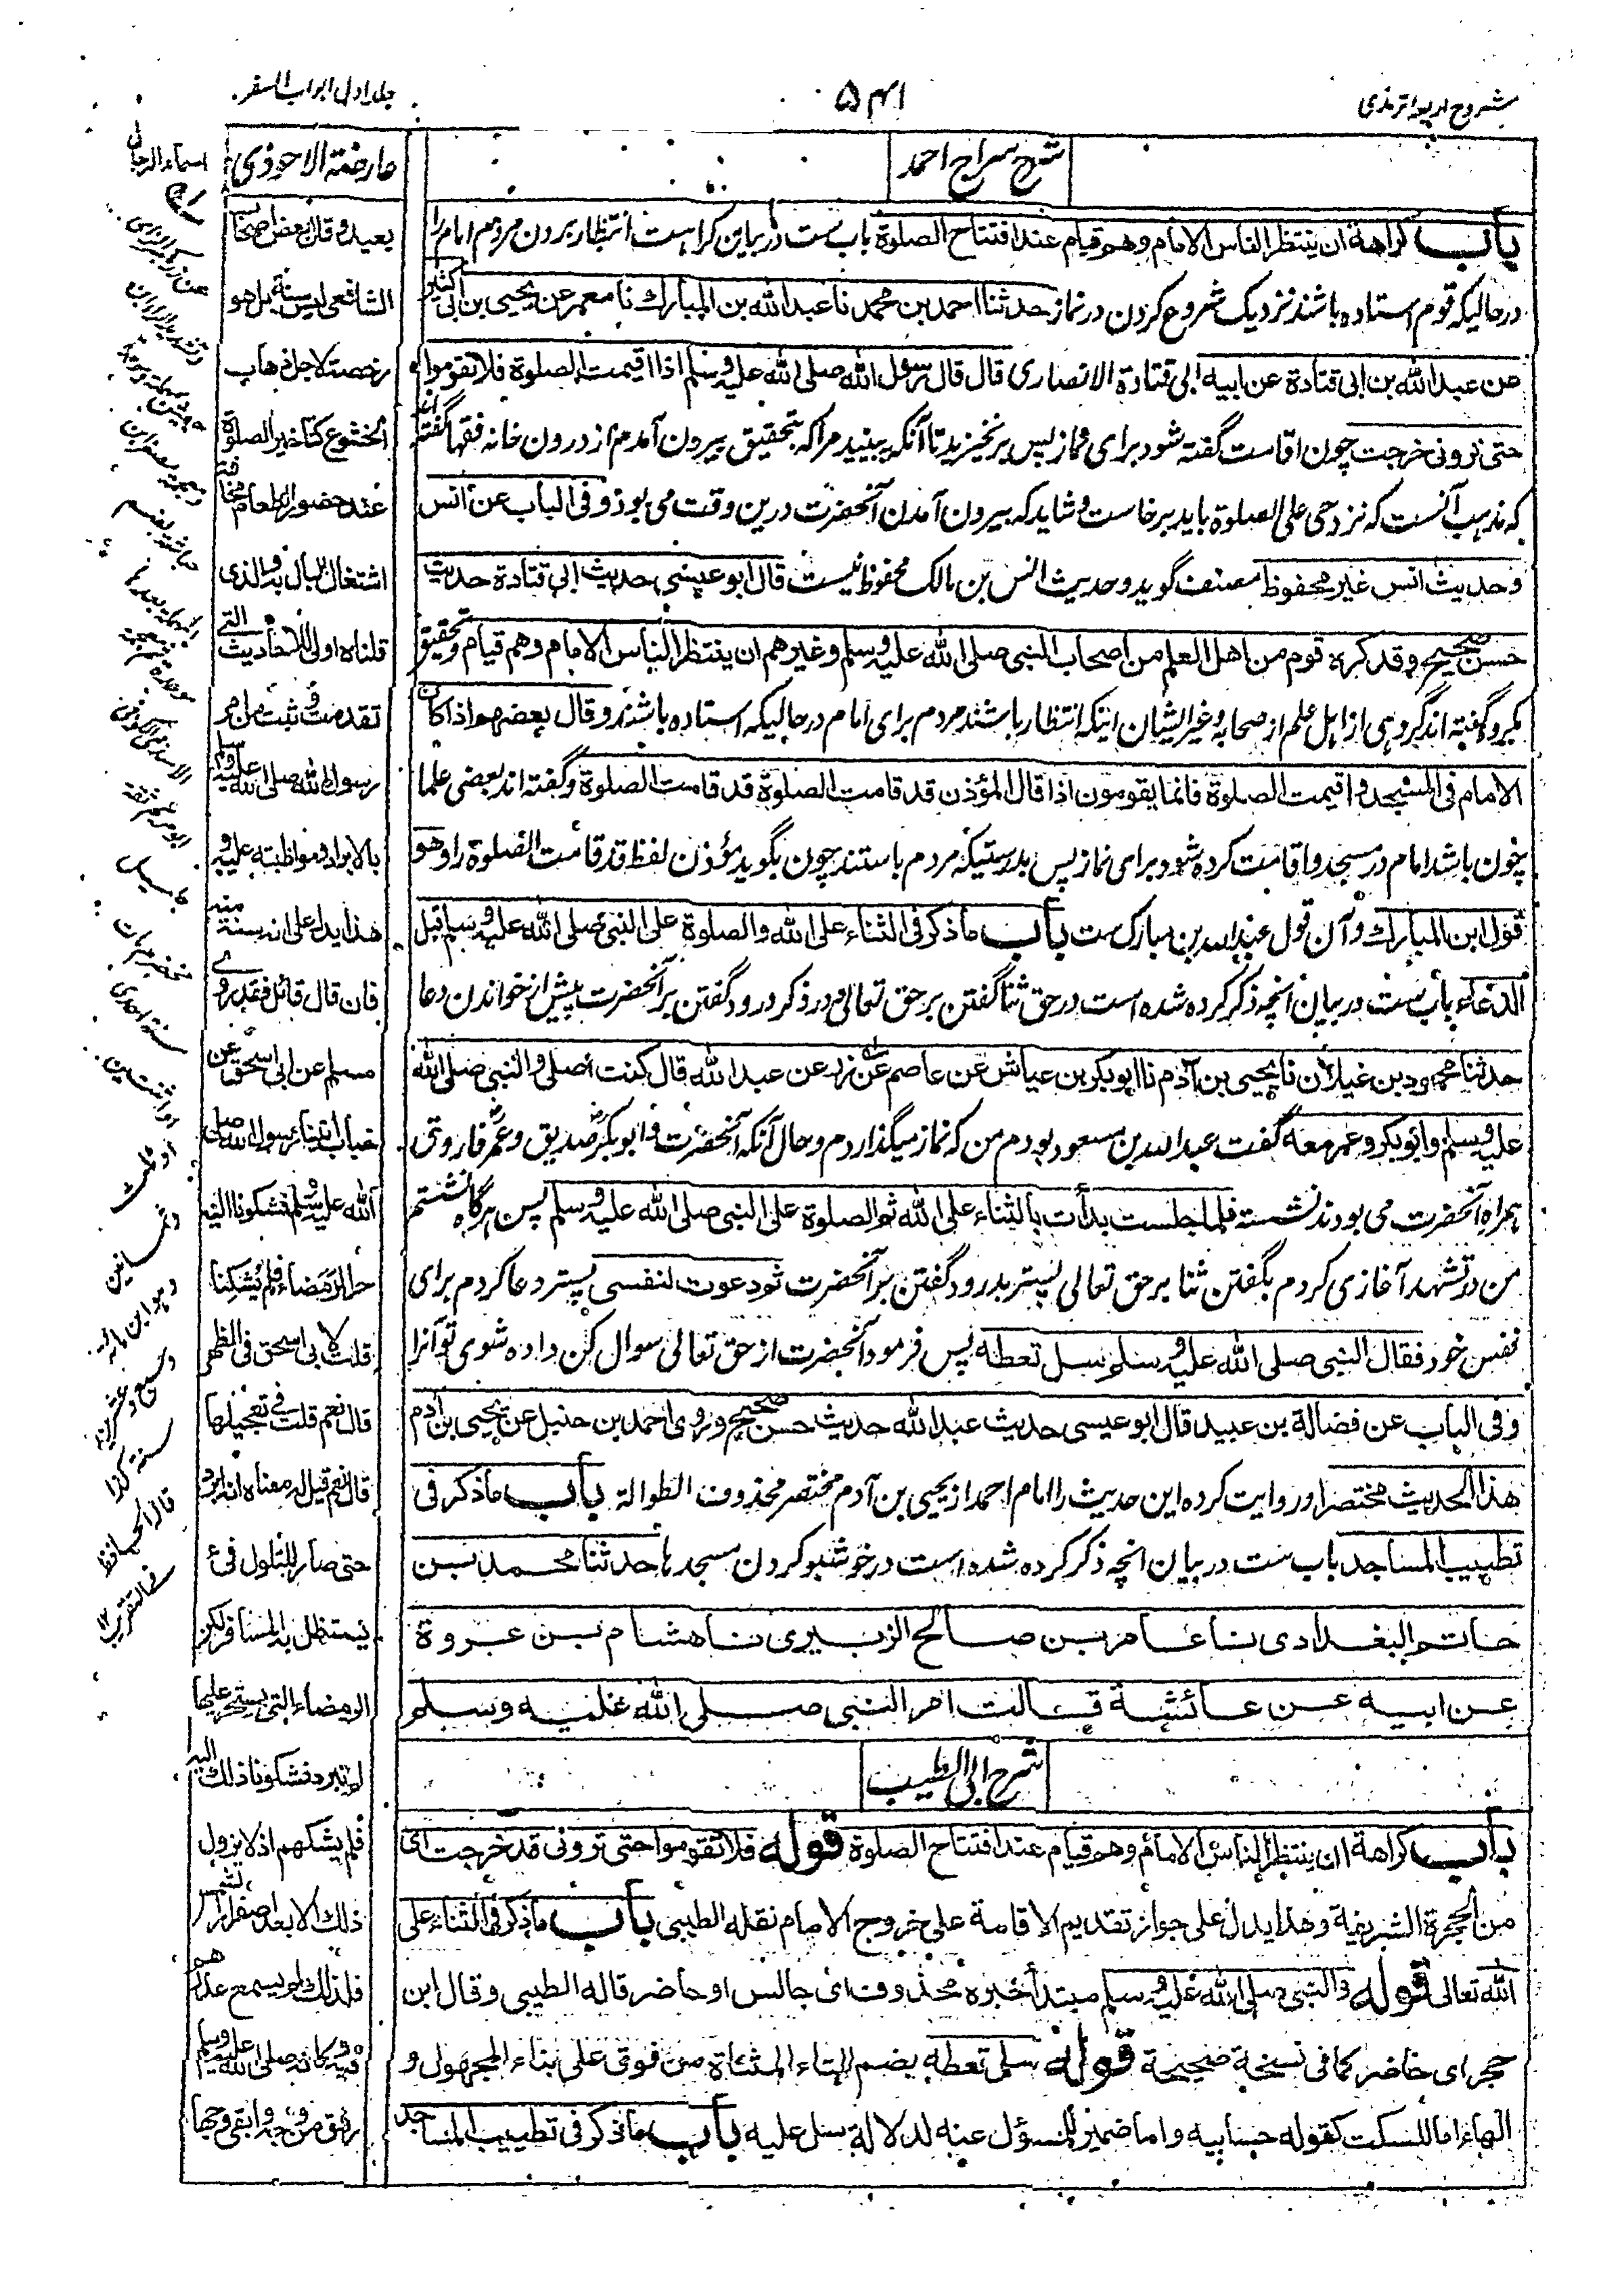 شروح اربعہ ترمذی
۵۴۱
جلد اول ابواب السفر
شرح سراج احمد
باب كراهة ان ينتظر الناس الامام وهم قيام عند افتتاح الصلوة باب ست در بیان کراہت انتظار بردن مردم امام را
در حالیکہ قوم استادہ باشند نزدیک شروع کردن در نماز حدثنا احمد بن محمد نا عبد الله بن المبارك نا معمر عن يحيى بن ابى كثير
عن عبد الله بن ابى قتادة عن ابيه ابى قتادة الانصارى قال قال رسول الله صلى الله عليه وسلم اذا اقيمت الصلوة فلا تقوموا
حتى ترونى خرجت چون اقامت گفتہ شود برای نماز پس برنخیزید تا آنکہ ببینید مرا کہ بتحقیق بیرون آمدم از درون خانہ فقہا گفتہ اند
کہ مذہب آنست کہ نزد حی علی الصلوة باید برخاست و شاید کہ بیرون آمدن آنحضرت درین وقت می بود و فى الباب عن انس
و حديث انس غير محفوظ مصنف گوید و حدیث انس بن مالک محفوظ نیست قال ابو عيسى حديث ابى قتادة حديث
حسن صحيح وقد كره قوم من اهل العلم من اصحاب النبى صلى الله عليه وسلم وغيرهم ان ينتظر الناس الامام وهم قيام و تحقیق
مکروہ گفتہ اند گروہی از اہل علم از صحابہ و غیر ایشان اینکہ انتظار باشند مردم برای امام در حالیکہ استادہ باشند و قال بعضهم اذا كان
الامام فى المسجد و اقيمت الصلوة فانما يقومون اذا قال المؤذن قد قامت الصلوة قد قامت الصلوة و گفتہ اند بعضی علما
چون باشد امام در مسجد و اقامت کردہ شود برای نماز پس بدرستیکہ مردم باستند چون بگوید مؤذن لفظ قد قامت الصلوة را وهو
قول ابن المبارك و آن قول عبد اللہ بن مبارک ست باب ما ذكر فى الثناء على الله والصلوة على النبى صلى الله عليه وسلم قبل
الدعاء باب ست در بیان انچہ ذکر کردہ شدہ است در حق ثنا گفتن بر حق تعالی و در ذکر درود گفتن بر آنحضرت پیش از خواندن دعا
حدثنا محمود بن غيلان نا يحيى بن آدم نا ابو بكر بن عياش عن عاصم عن زر عن عبد الله قال كنت اصلى و النبى صلى الله
عليه وسلم و ابو بكر و عمر معه گفت عبد اللہ بن مسعود بودم من کہ نماز میگذاردم و حال آنکہ آنحضرت و ابو بکر صدیق و عمر فاروق
ہمراہ آنحضرت می بودند نشستہ فلما جلست بدأت بالثناء على الله ثم الصلوة على النبى صلى الله عليه وسلم پس ہرگاہ نشستم
من در تشہد آغازی کردم بگفتن ثنا بر حق تعالی پستر بدرود گفتن بر آنحضرت ثم دعوت لنفسى پستر دعا کردم برای
نفس خود فقال النبى صلى الله عليه وسلم سل تعطه پس فرمود آنحضرت از حق تعالی سوال کن دادہ شوی تو آنرا
و فى الباب عن فضالة بن عبيد قال ابو عيسى حديث عبد الله حديث حسن صحيح و روى احمد بن حنبل عن يحيى بن آدم
هذا الحديث مختصرا و روایت کردہ این حدیث را امام احمد از یحیی بن آدم مختصر محذوف الطوالة باب ما ذكر فى
تطييب المساجد باب ست در بیان انچہ ذکر کردہ شدہ است در خوشبو کردن مسجدہا حدثنا محمد بن
حاتم البغدادى نا عامر بن صالح الزبيرى نا هشام بن عروة
عن ابيه عن عائشة قالت امر النبى صلى الله عليه وسلم
شرح ابی الطیب
باب كراهة ان ينتظر الناس الامام وهم قيام عند افتتاح الصلوة قوله فلا تقوموا حتى ترونى قد خرجت اى
من الحجرة الشريفة و هذا يدل على جواز تقديم الاقامة على خروج الامام نقله الطيبى باب ما ذكر فى الثناء على
الله تعالى قوله و النبى صلى الله عليه وسلم مبتدأ خبره محذوف اى جالس او حاضر قاله الطيبى و قال ابن
حجر اى حاضر كما فى نسخة صحيحة قوله سل تعطه بضم التاء المثناة من فوق على بناء المجهول و
الهاء اما للسكت كقوله حسابيه و اما ضمير للمسؤل عنه لدلالة سل عليه باب ما ذكر فى تطييب المساجد
عارضة الاحوذى
يعيد و قال بعض اصحاب
الشافعى ليس سنة بل هو
رخصة لاجل ذهاب
الخشوع كتاخير الصلوة
عند حضور الطعام مخافة
اشتغال البال به و الذى
قلناه اولى للاحاديث التى
تقدمت و ثبت من امر
رسول الله صلى الله عليه وسلم
بالابراد و مواظبته عليه و
هذا يدل على انه سنة منه
فان قال قائل فقد روى
مسلم عن ابى اسحق عن
خباب اتينا رسول الله صلى
الله عليه وسلم فشكونا اليه
حر الرمضاء فلم يشكنا
قلت لابى اسحق فى الظهر
قال نعم قلت فى تعجيلها
قال نعم قيل له معناه انه ابرد
حتى صار للتلول فىء
يستظل به المسافر لكن
الرمضاء التى يستحر عليها
لم تبرد فشكونا ذلك اليه
فلم يشكهم اذ لا يزول
ذلك الا بعد اصفرار الشمس
فلذلك لم يسمع عذرهم
فيه و كانه صلى الله عليه وسلم
رفق من وجه و ابقى وجها
اسماء الرجال
قال الحافظ
فی التقریب ۱۲